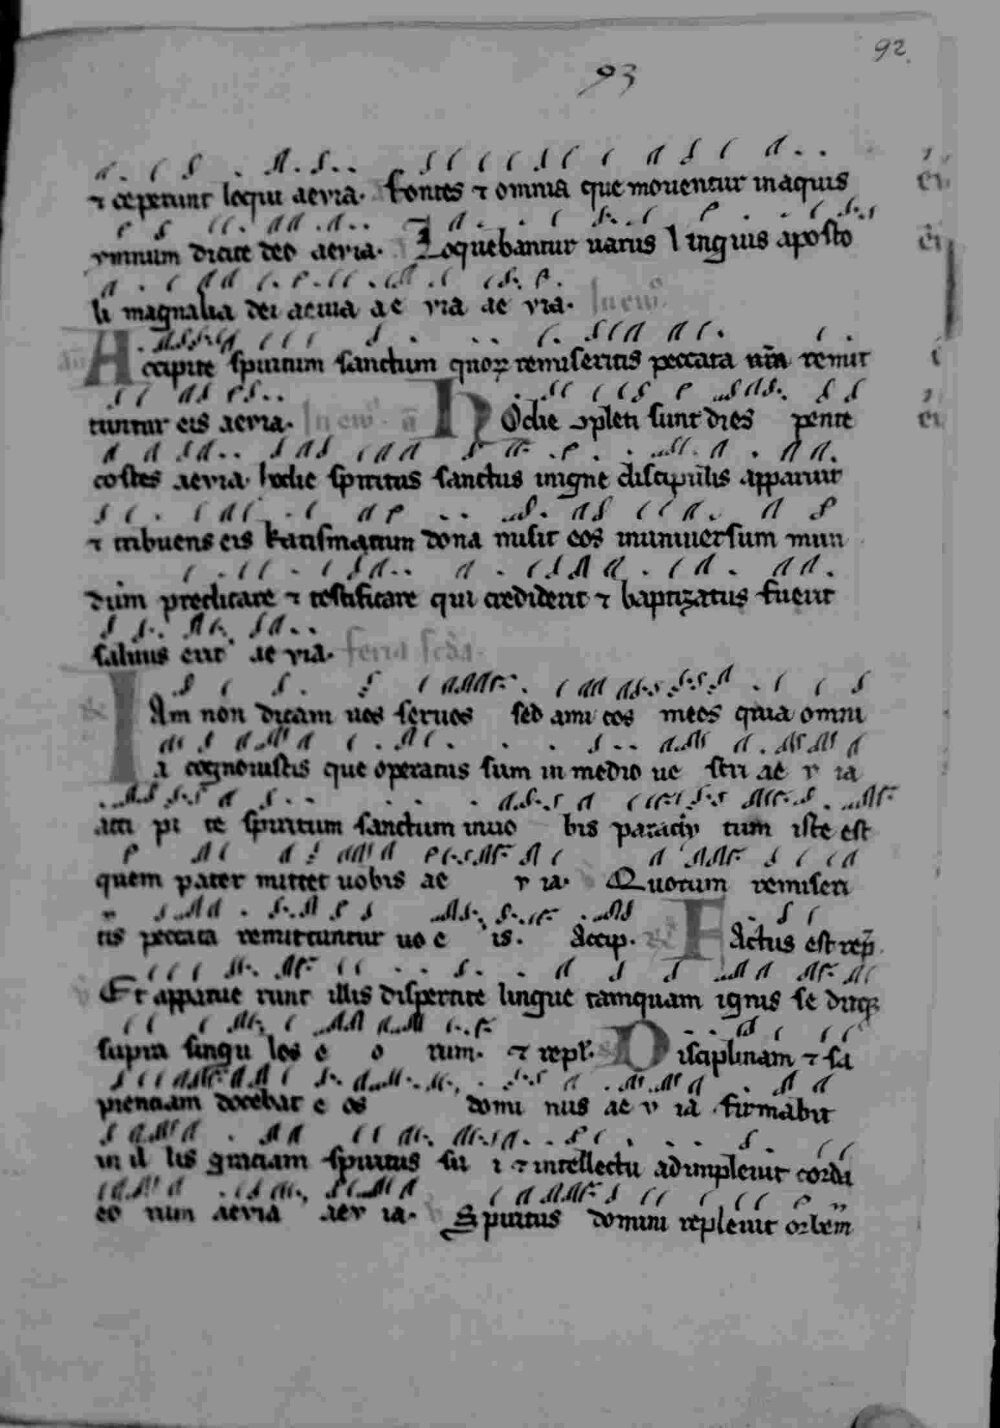 92
93
⁊ ceperunt loqui aevia. Fontes ⁊ omnia que mouentur in aquis
ymnum dicite deo aevia. Loquebantur uariis linguis aposto
li magnalia dei aeuia ae via ae via. In eu͞o
Accipite spiritum sanctum quoꝝ remiseritis peccata n͞ra remit
tuntur eis aevia. In eu͞o a͞ Hodie ꝯpleti sunt dies pente
costes aevia. hodie spiritus sanctus in igne discipulis apparuit
⁊ tribuens eis karismatum dona misit eos in uniuersum mun
dum predicare ⁊ testificare qui crediderit ⁊ baptizatus fuerit
saluus erit ae via. feria sc͞da.
Iam non dicam uos seruos sed ami cos meos quia omni
a cognouistis que operatus sum in medio ue stri ae v ia
acci pi te spiritum sanctum in uo bis paracly tum iste est
quem pater mittet uobis ae v ia. Quorum remiseri
tis peccata remittuntur uo e is. Accip. Factus est rep̄.
Et apparue runt illis dispertite lingue tamquam ignis se ditqꝫ
supra singu los e o rum. ⁊ repl. Disciplinam ⁊ sa
pientiam docebat e os domi nus ae v ia firmabit
in il lis gratiam spiritus su i ⁊ intellectu adimpleuit corda
eo rum aevia aev ia. Spiritus domini repleuit orbem